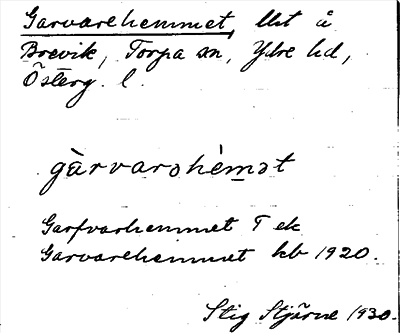 Garvarehemmet, llt å
Brevik, Torpa sn, Ydre hd,
Österg. l.
gàrvarəhèm̲ət
Garfvarhemmet T ek
Garvarehemmet kb 1920.
Stig Stjärne 1930.